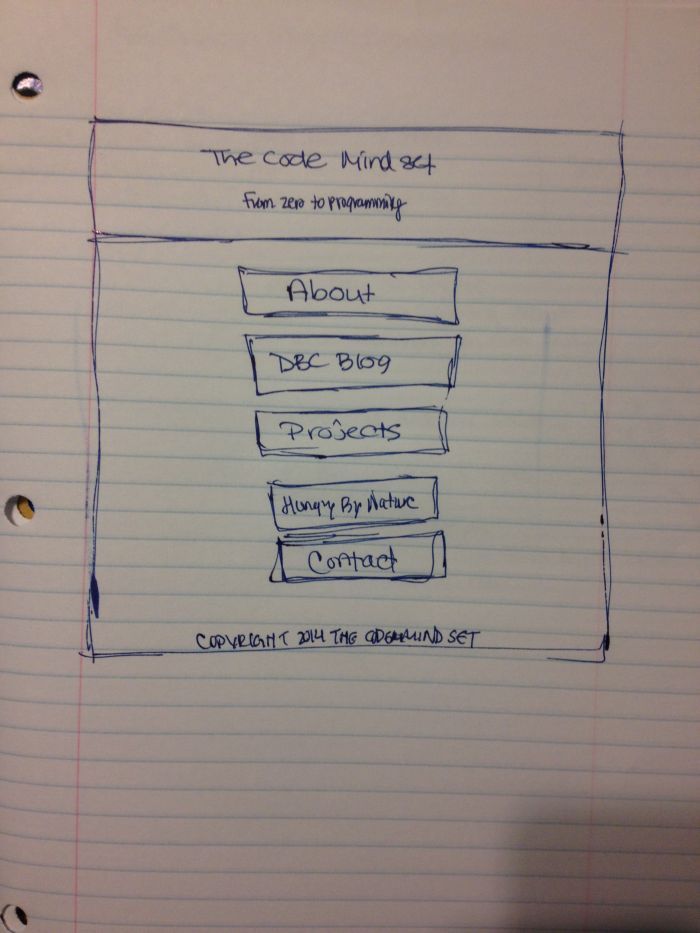 The Code Mind set
From zero to programming
About
DBC Blog
Projects
Hungry By Nature
Contact
COPYRIGHT 2014 THE CODE MIND SET